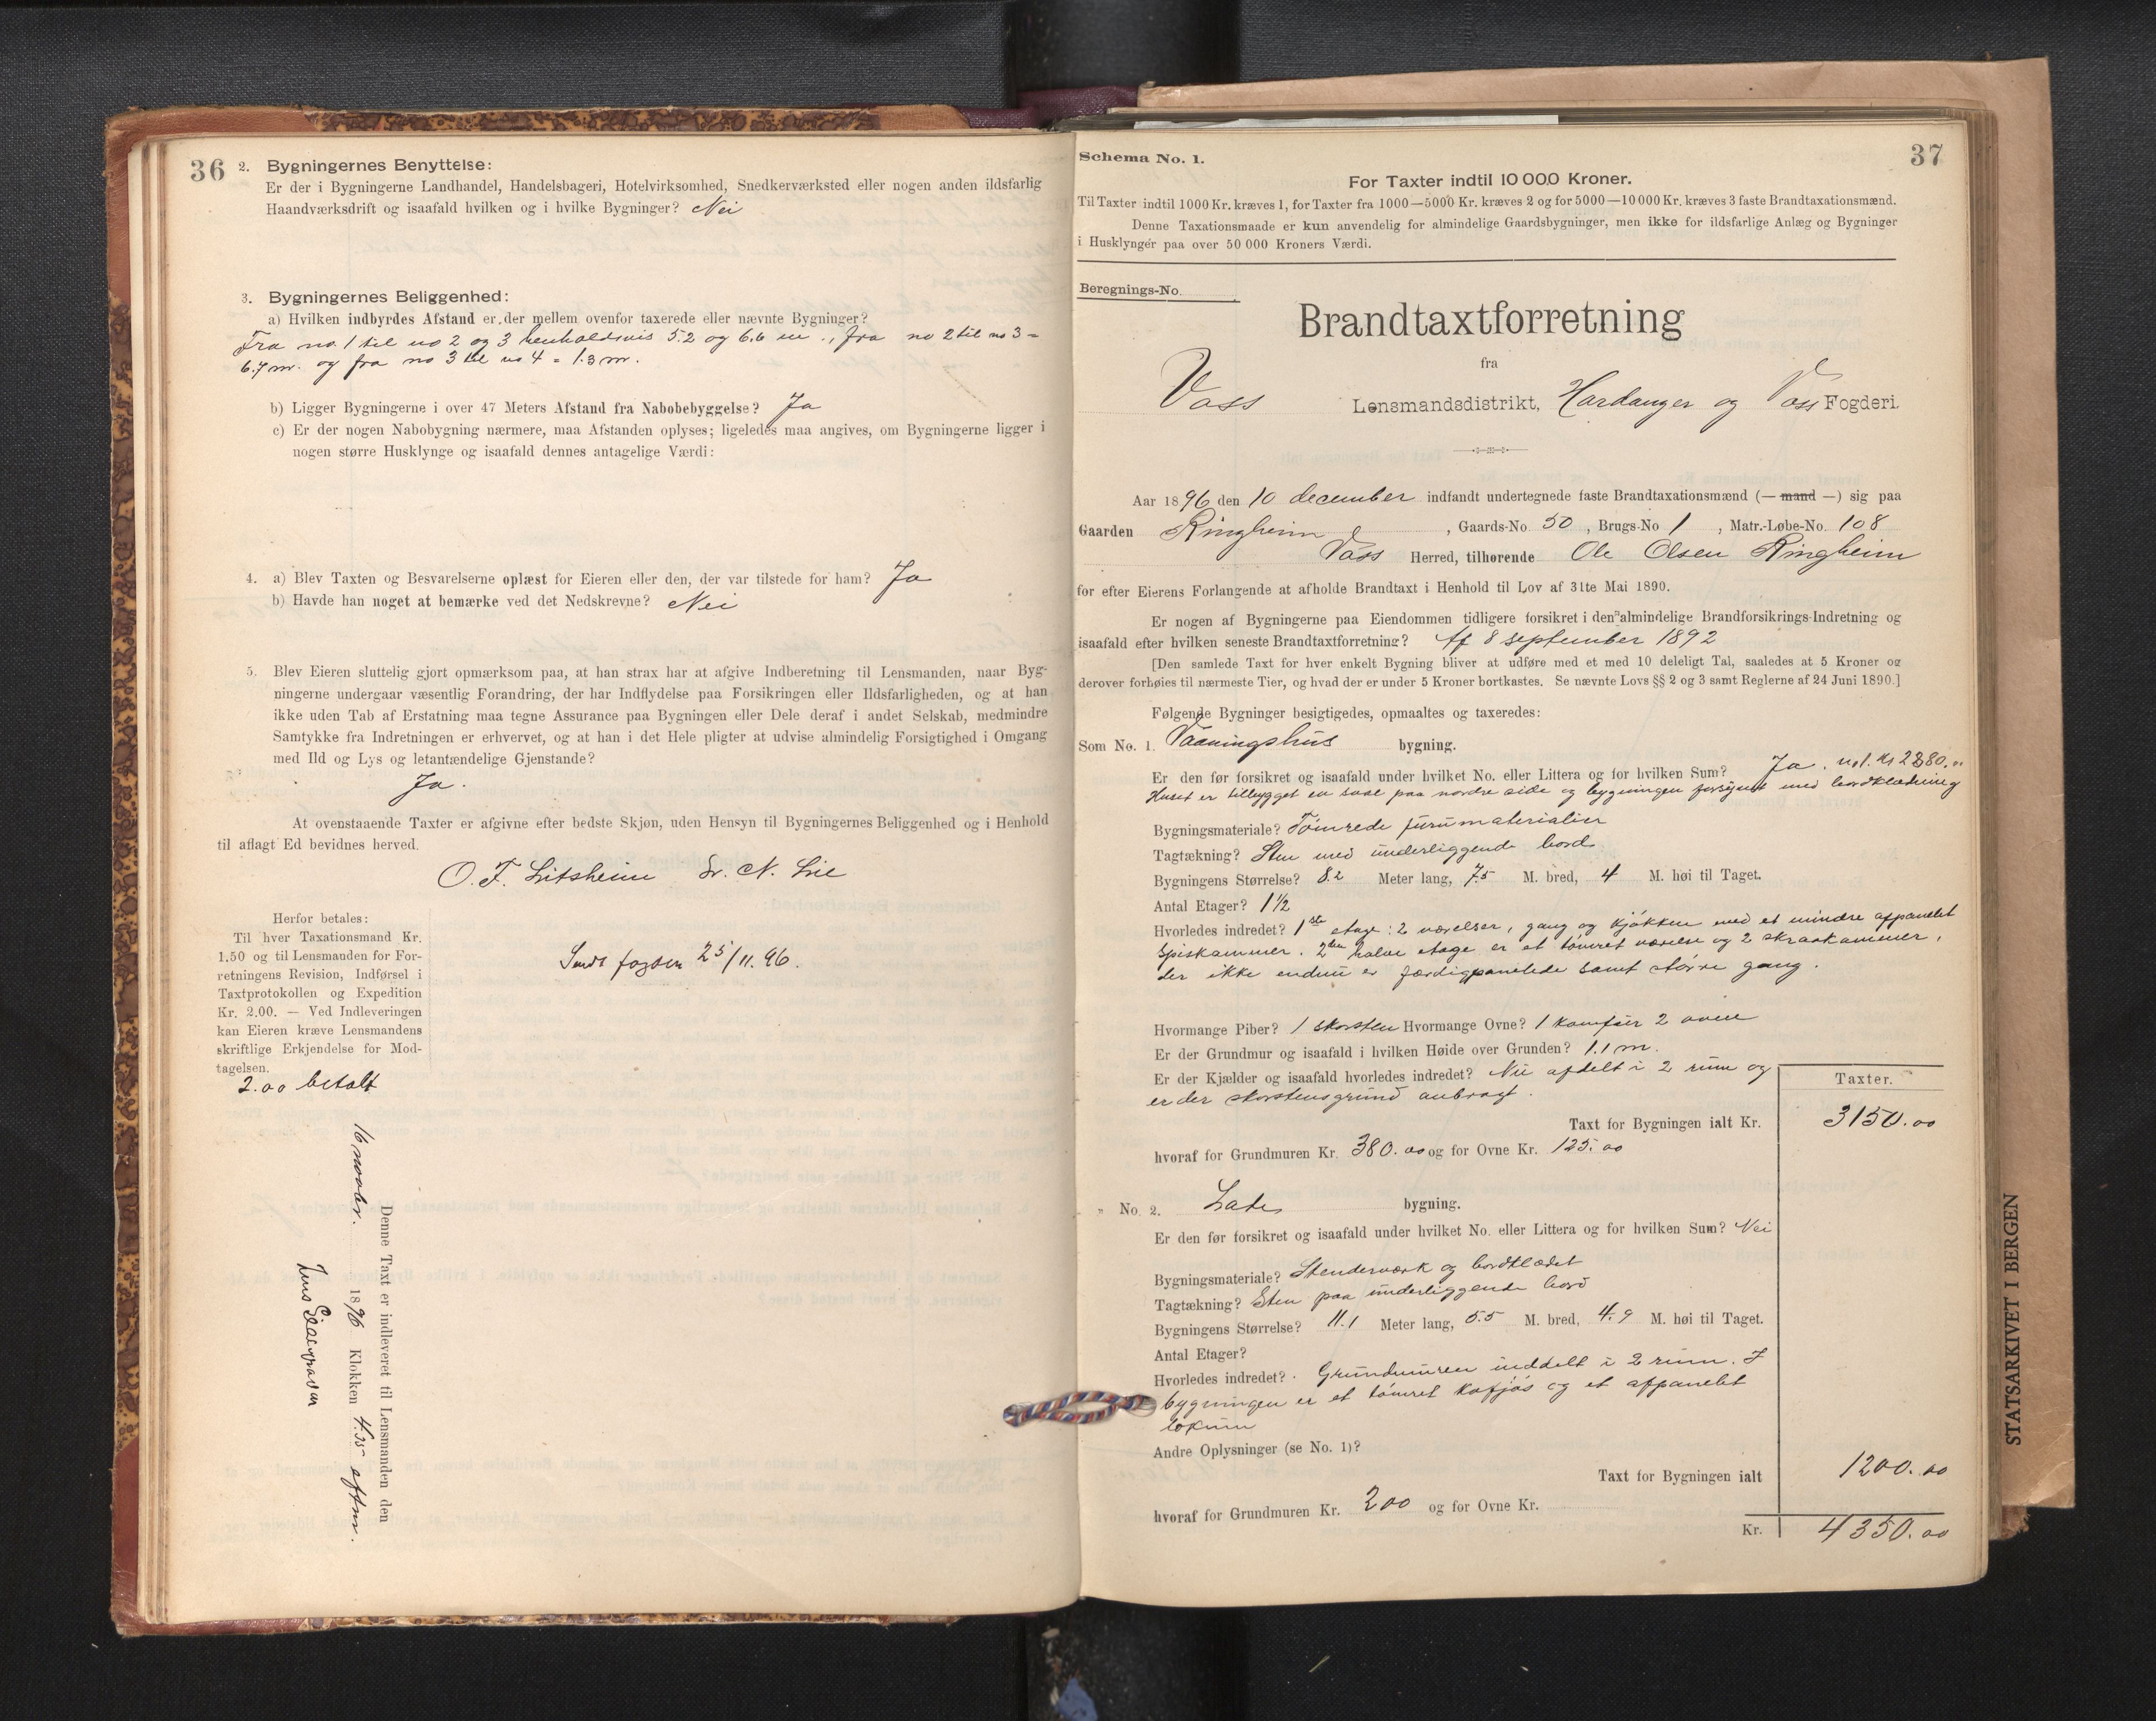 36
2. Bygningernes Benyttelse:
Er der i Bygningerne Landhandel, Handelsbageri, Hotelvirksomhed, Snedkerværksted eller nogen anden ildsfarlig
Haandværksdrift og isaafald hvilken og i hvilke Bygninger? Nei
3. Bygningernes Beliggenhed:
a) Hvilken indbyrdes Afstand er der mellem ovenfor taxerede eller nævnte Bygninger?
Fra no. 1 til no 2 og 3 henholdsvis 5.2 og 6.6 m., fra no 2 til no 3 =
6.7 m. og fra no 3 til no 4 = 1.3 m.
b) Ligger Bygningerne i over 47 Meters Afstand fra Nabobebyggelse? Ja
c) Er der nogen Nabobygning nærmere, maa Afstanden oplyses; ligeledes maa angives, om Bygningerne ligger i
nogen større Husklynge og isaafald dennes antagelige Værdi:
4. a) Blev Taxten og Besvarelserne oplæst for Eieren eller den, der var tilstede for ham? Ja
b) Havde han noget at bemærke ved det Nedskrevne? Nei
5. Blev Eieren sluttelig gjort opmærksom paa, at han strax har at afgive Indberetning til Lensmanden, naar Byg-
ningerne undergaar væsentlig Forandring, der har Indflydelse paa Forsikringen eller Ildsfarligheden, og at han
ikke uden Tab af Erstatning maa tegne Assurance paa Bygningen eller Dele deraf i andet Selskab, medmindre
Samtykke fra Indretningen er erhvervet, og at han i det Hele pligter at udvise almindelig Forsigtighed i Omgang
med Ild og Lys og letantændelige Gjenstande?
Ja.
At ovenstaaende Taxter er afgivne efter bedste Skjøn, uden Hensyn til Bygningernes Beliggenhed og i Henhold
til aflagt Ed bevidnes herved.
O. F. Litsheim N. Lie
Herfor betales:
Til hver Taxationsmand Kr.
1.50 og til Lensmanden for For-
retningens Revision, Indførsel i
Taxtprotokollen og Expedition
Kr. 2.00. — Ved Indleveringen
kan Eieren kræve Lensmandens
skriftlige Erkjendelse for Mod-
tagelsen.
2.00 betalt
Sendt fogden 25/11.96.
Denne Taxt er indleveret til Lensmanden den
16 novbr. 1896 Klokken 4.35 eftm.
37
Schema No. 1.
For Taxter indtil 10 000 Kroner.
Til Taxter indtil 1000 Kr. kræves 1, for Taxter fra 1000—5000 Kr. kræves 2 og for 5000—10 000 Kr. kræves 3 faste Brandtaxationsmænd.
Denne Taxationsmaade er kun anvendelig for almindelige Gaardsbygninger, men ikke for ildsfarlige Anlæg og Bygninger
i Husklynger paa over 50 000 Kroners Værdi.
Beregnings-No.
Brandtaxtforretning
fra
Voss Lensmandsdistrikt, Hardanger og Voss Fogderi.
Aar 1896 den 10 december indfandt undertegnede faste Brandtaxationsmænd (— mand —) sig paa
Gaarden Ringheim, Gaards-No. 50, Brugs-No 1, Matr.-Løbe-No. 108
Voss Herred, tilhørende Ole Olsen Ringheim
for efter Eierens Forlangende at afholde Brandtaxt i Henhold til Lov af 31te Mai 1890.
Er nogen af Bygningerne paa Eiendommen tidligere forsikret i den almindelige Brandforsikrings-Indretning og
isaafald efter hvilken seneste Brandtaxtforretning? Af 8 september 1892
[Den samlede Taxt for hver enkelt Bygning bliver at udføre med et med 10 deleligt Tal, saaledes at 5 Kroner og
derover forhøies til nærmeste Tier, og hvad der er under 5 Kroner bortkastes. Se nævnte Lovs §§ 2 og 3 samt Reglerne af 24 Juni 1890.]
Følgende Bygninger besigtigedes, opmaaltes og taxeredes:
Som No. 1. Vaaningshus bygning.
Er den før forsikret og isaafald under hvilket No. eller Littera og for hvilken Sum? Ja. no 1. Kr 2280.00
Huset er tilbygget en sval paa nordre side og bygningen forsynet med bordklædning
Bygningsmateriale? Tømrede furumaterialier
Tagtækning? Sten med underliggende bord
Bygningens Størrelse? 8.2 Meter lang, 7.5 M. bred, 4 M. høi til Taget.
Antal Etager? 1½
Hvorledes indredet? 1ste etage: 2 værelser, gang og kjøkken med et mindre afpanelet
spiskammer. 2den halve etage er et tømret værelse og 2 skraakammer,
der ikke endnu er færdigpanelede samt større gang.
Hvormange Piber? 1 skorsten Hvormange Ovne? 1 komfur 2 ovne
Er der Grundmur og isaafald i hvilken Høide over Grunden? 1.1 m.
Er der Kjælder og isaafald hvorledes indredet? Nei afdelt i 2 rum og
er der skorstensgrund anbragt.
Taxter.
Taxt for Bygningen ialt Kr. 3150.00
hvoraf for Grundmuren Kr. 380.00 og for Ovne Kr. 125.00
" No. 2. Lade bygning.
Er den før forsikret og isaafald under hvilket No. eller Littera og for hvilken Sum? Nei
Bygningsmateriale? Stenderværk og bordklædet
Tagtækning? Sten paa underliggende bord
Bygningens Størrelse? 11.1 Meter lang, 5.5 M. bred, 4.9 M. høi til Taget.
Antal Etager?
Hvorledes indredet? Grundmuren inddelt i 2 rum. I
bygningen er et tømret kofjøs og et afpanelet
lokum
Andre Oplysninger (se No. 1)?
Taxt for Bygningen ialt 1200.00
hvoraf for Grundmuren Kr. 200 og for Ovne Kr.
Kr. 4350.00
STATSARKIVET I BERGEN